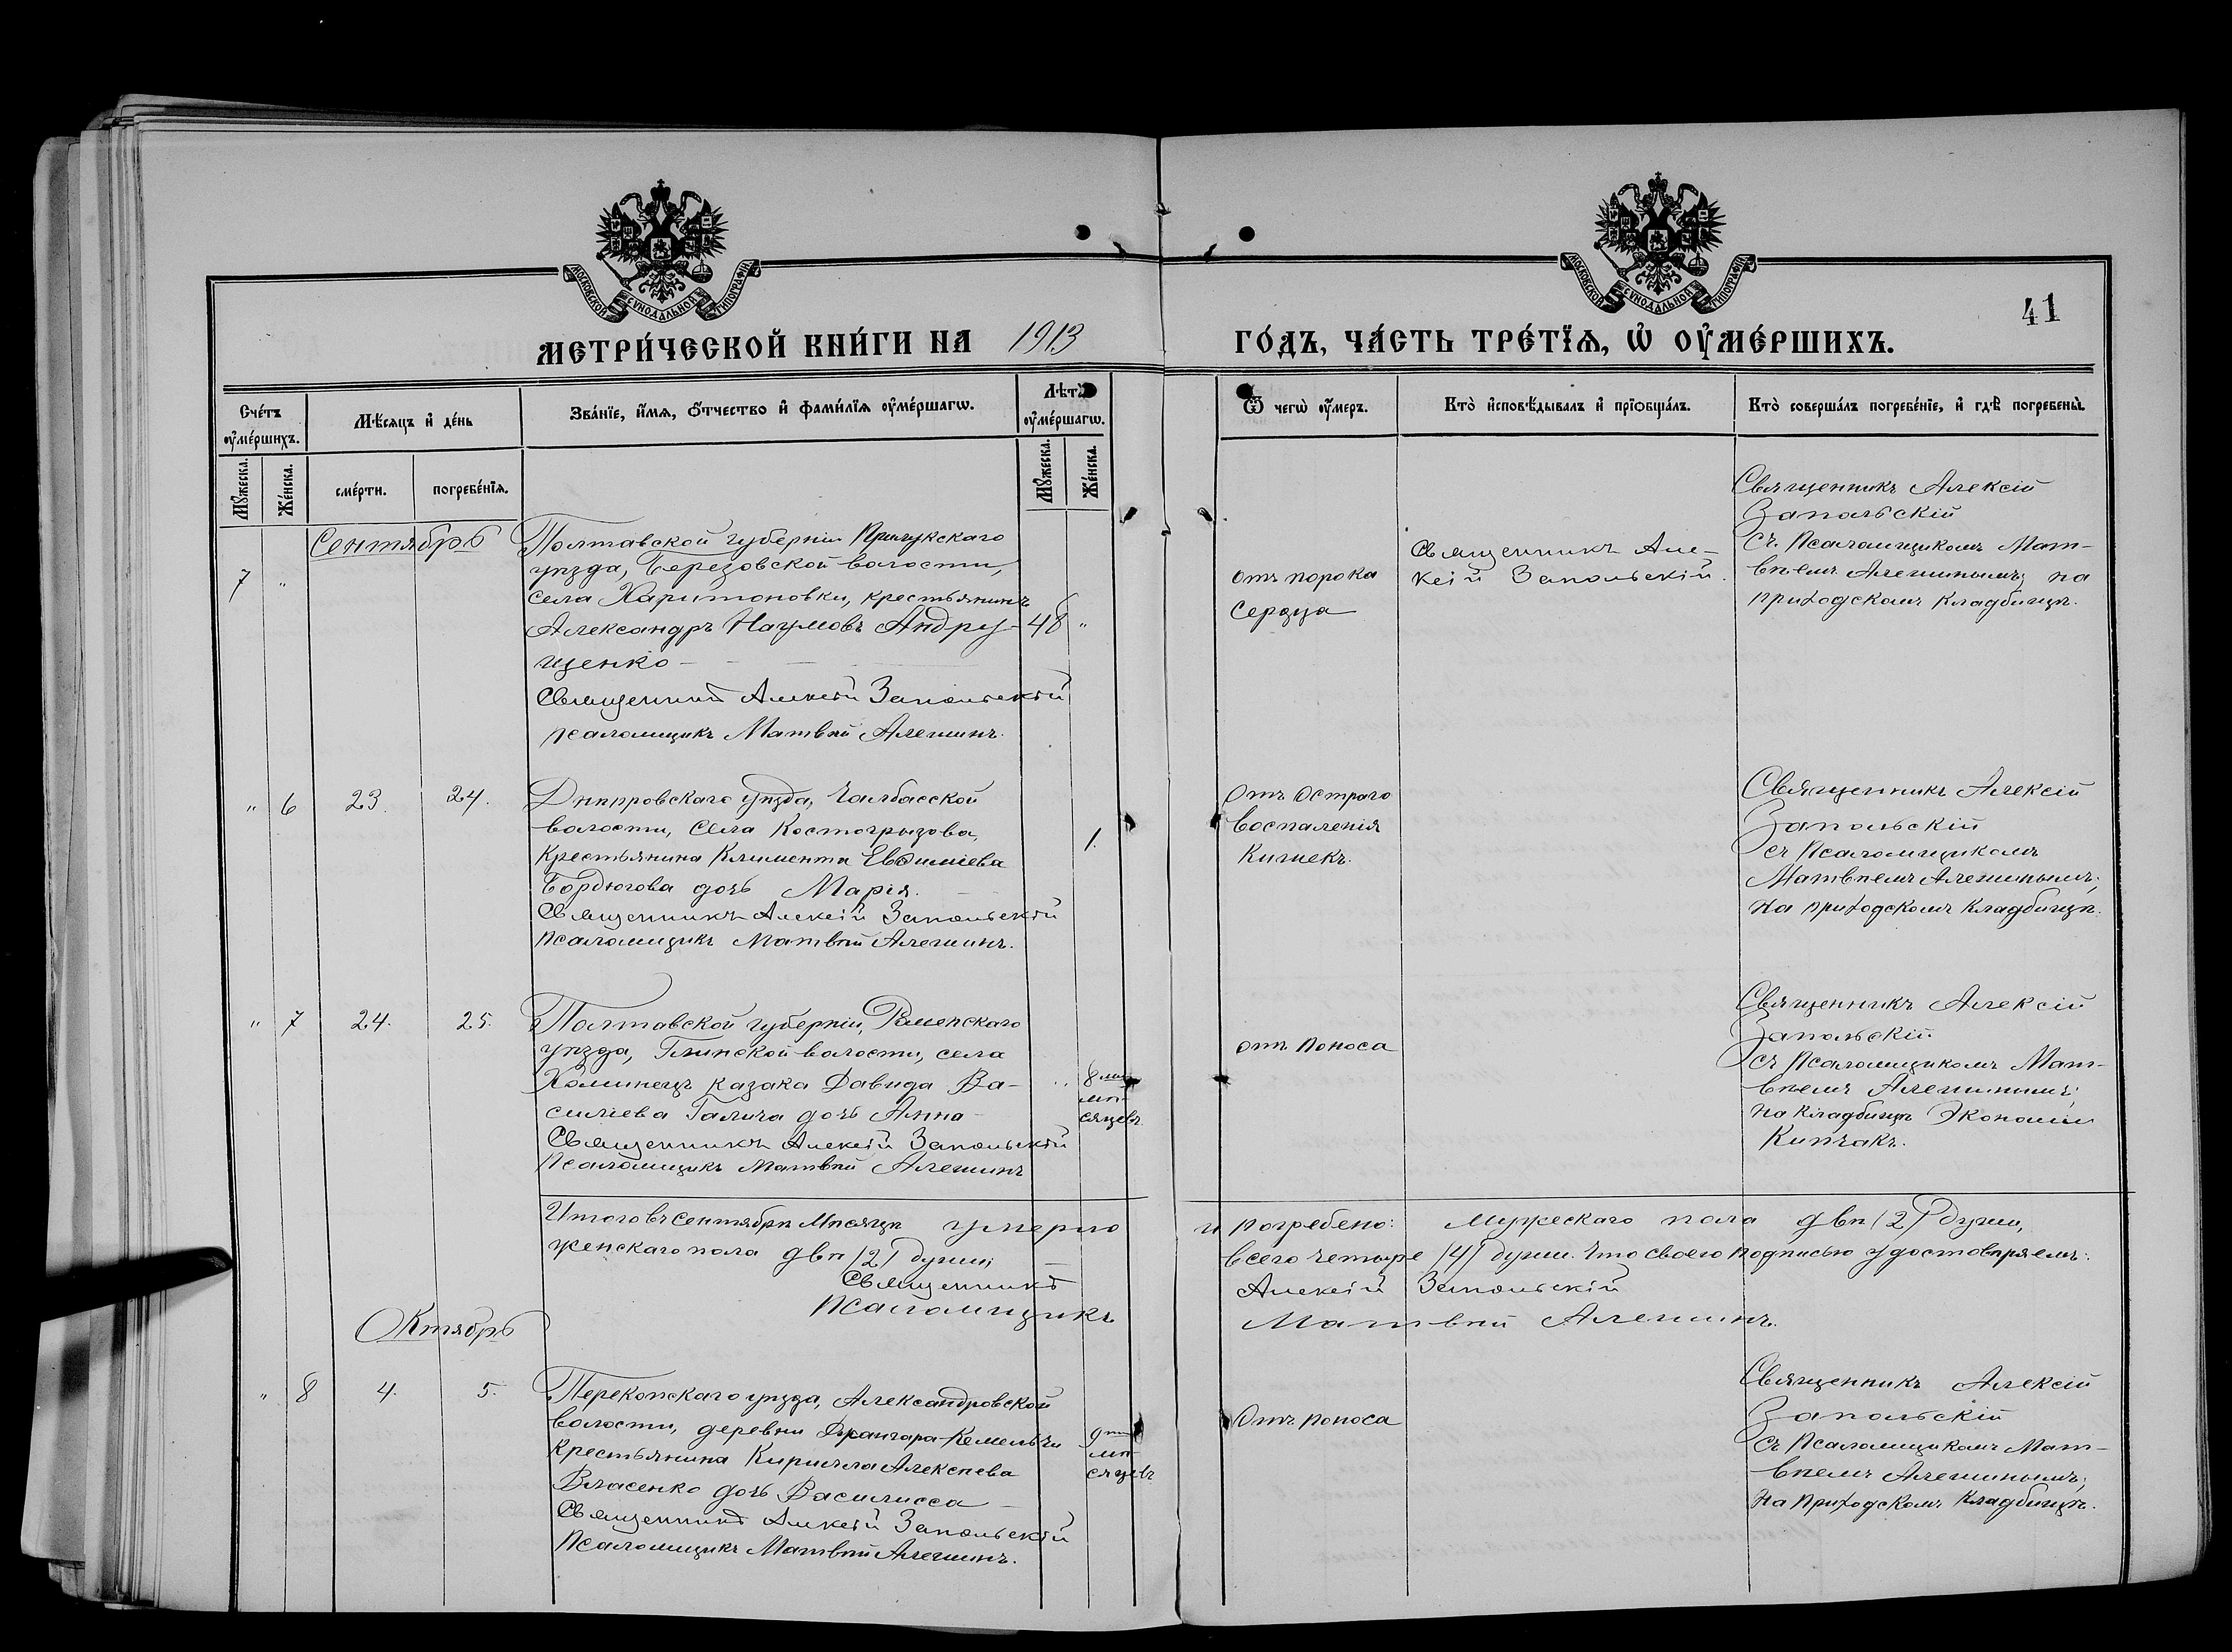 МОСКОВСКОЙ СѴНОДАЛЬНОЙ ТИПОГРАФІИ
МОСКОВСКОЙ СѴНОДАЛЬНОЙ ТИПОГРАФІИ
41
МЕТРИ́ЧЕСКОЙ КНИ́ГИ НА 1913 ГО́ДЪ, ЧА́СТЬ ТРЕ́ТЇѦ, Ѡ҆ ОУ҆МЕ́РШИХЪ.
Сче́тъ оу҆ме́ршихъ.
Мꙋ́жеска.
Же́нска.
Мѣ́сяцъ и҆ де́нь
сме́рти.
погребе́нїѧ.
Зва́нїе, и҆́мѧ, ѻ҆́тчество и҆ фами́лїѧ оу҆ме́ршагѡ.
Лѣ́та оу҆ме́ршагѡ.
Мꙋ́жеска.
Же́нска.
Ѿ чегѡ̀ оу҆́меръ.
Кто̀ и҆сповѣ́дывалъ и҆ прїѡбща́лъ.
Кто̀ соверша́лъ погребе́нїе, и҆ гдѣ̀ погребены̀.
Сентябрь
7 "
Полтавской губерніи Прилукскаго
уѣзда, Березовской волости,
села Харитоновки, крестьянинъ
Александръ Наумовъ Андру- 48 "
щенко
Священникъ Алексій Запольскій
псаломщикъ Матвѣй Алешинъ.
отъ порока
сердца
Священникъ Але-
ксій Запольскій.
Священникъ Алексій
Запольскій
съ псаломщикомъ Мат-
вѣемъ Алешинымъ; на
приходскомъ кладбищѣ.
" 6 23. 24.
Днѣпровскаго уѣзда, Чалбасской
волости, села Костогрызова,
крестьянина Климента Евѳиміева 1.
Бордюгова дочь Марія.
Священникъ Алексій Запольскій
псаломщикъ Матвѣй Алешинъ.
Отъ остраго
воспаленія
кишекъ.
Священникъ Алексій
Запольскій
съ псаломщикомъ
Матвѣемъ Алешинымъ;
на приходскомъ кладбищѣ.
" 7 24. 25.
Полтавской губерніи, Роменскаго
уѣзда, Глинской волости, села
Хоминецъ казака Давида Ва-
силіева Галича дочь Анна
" 8 мѣ-
сяцевъ
Священникъ Алексій Запольскій
псаломщикъ Матвѣй Алешинъ
отъ поноса
Священникъ Алексій
Запольскій
съ псаломщикомъ Мат-
вѣемъ Алешинымъ;
на кладбищѣ Экономіи
Кипчакъ.
Итого въ сентябрѣ мѣсяцѣ умерло и погребено: мужескаго пола двѣ /2/ души,
женскаго пола двѣ /2/ души; всего четыре /4/ души. Что своею подписью удостовѣряемъ:
Священникъ Алексій Запольскій
Псаломщикъ Матвѣй Алешинъ.
Октябрь
" 8 4. 5.
Перекопскаго уѣзда, Александровской
волости, деревни Джангара-Кемельчи
крестьянина Кирилла Алексѣева
Власенко дочь Василисса
9 мѣ-
сяцевъ
Священникъ Алексій Запольскій
псаломщикъ Матвѣй Алешинъ.
Отъ поноса
Священникъ Алексій
Запольскій
съ псаломщикомъ Мат-
вѣемъ Алешинымъ;
на приходскомъ кладбищѣ.